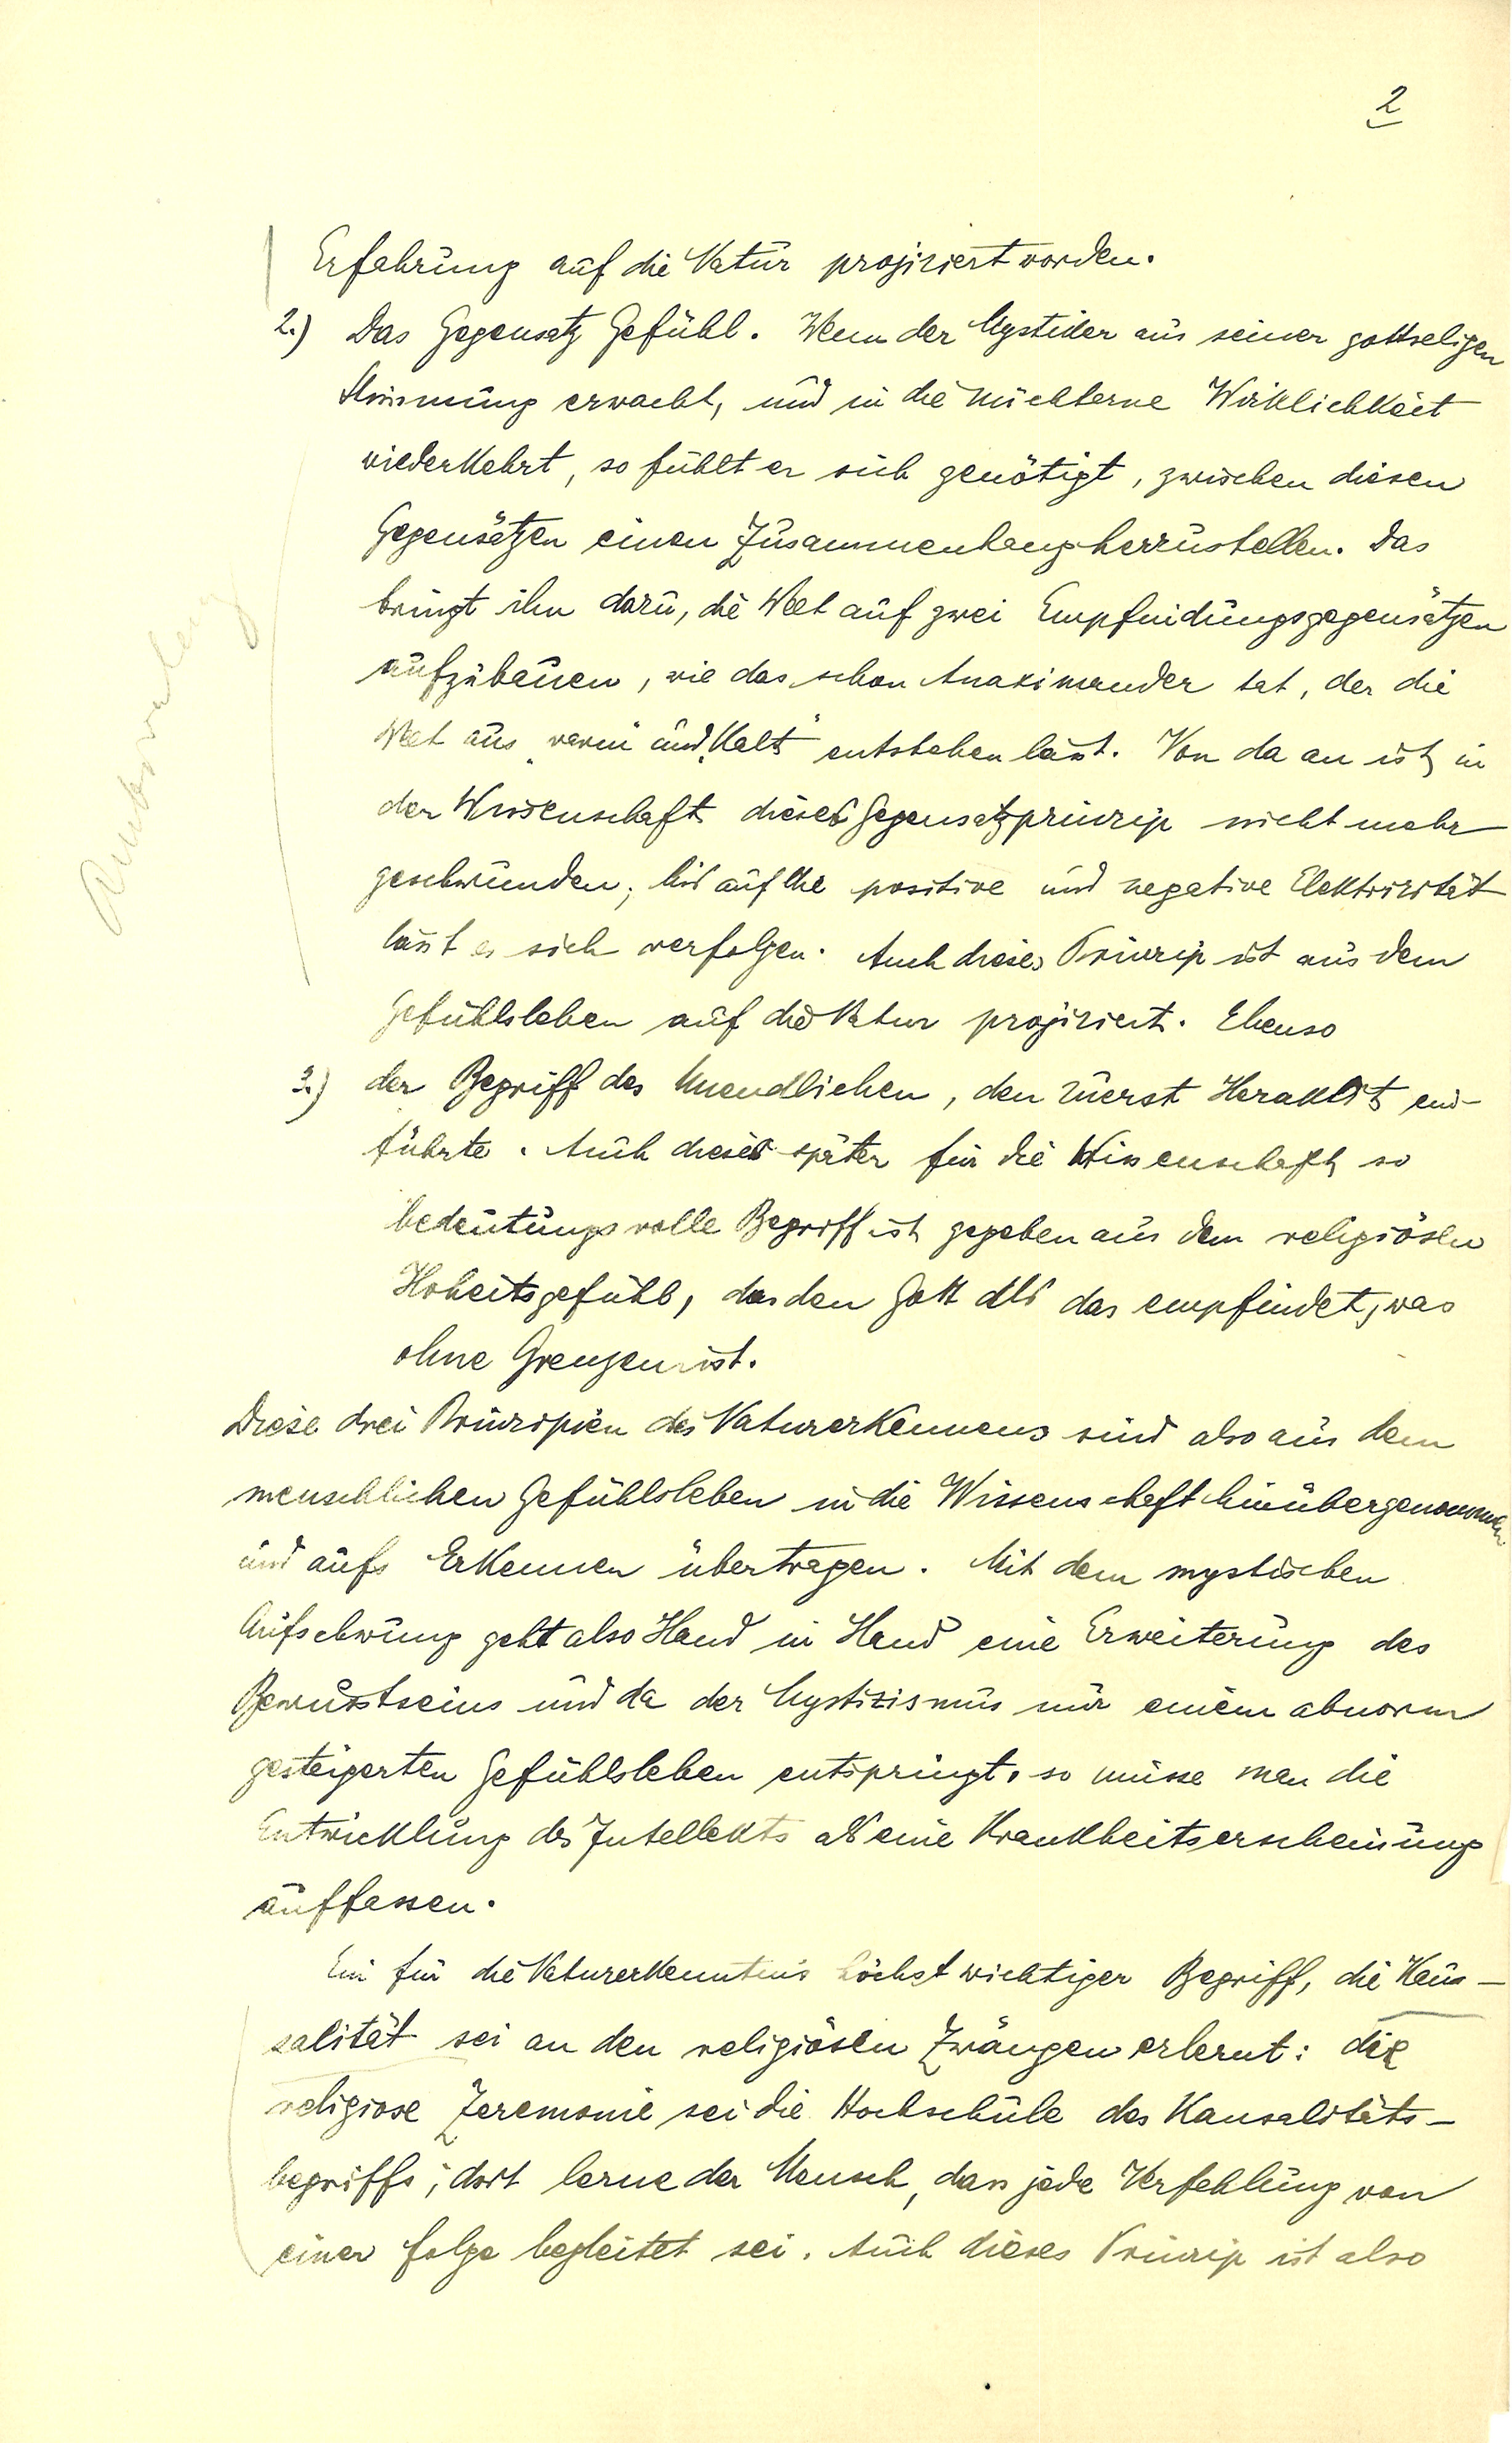 2
Erfahrung auf die Natur projiziert worden.
2.) Das Gegensatz Gefühl. Wenn der Mystiker aus seiner gottseligen
Stimmung erwacht, und in die nüchterne Wirklichkeit
wiederkehrt, so fühlt er sich genötigt, zwischen diesen
Gegensätzen einen Zusammenhang herzustellen. Das
bringt ihn dazu, die Welt auf zwei Empfindungsgegensätzen
aufzubauen, wie das schon Anaximander tat, der die
Welt aus „warm" und „Kalt" entstehen lässt. Von da an ist in
der Wissenschaft dieses Gegensatzprinzip nicht mehr
geschwunden; bis auf die positive und negative Elektrizität
lässt es sich verfolgen. Auch dieses Prinzip ist aus dem
Gefühlsleben auf die Natur projiziert. Ebenso
3.) der Begriff des Unendlichen, den zuerst Heraklit ein-
führte. Auch dieser später für die Wissenschaft so
bedeutungsvolle Begriff ist gegeben aus dem religiösen
Hoheitsgefühl, das den Gott als das empfindet, was
ohne Grenzen ist.
Diese drei Prinzipien des Naturerkennens sind also aus dem
menschlichen Gefühlsleben in die Wissenschaft hinübergenommen
und aufs Erkennen übertragen. Mit dem mystischen
Aufschwung geht also Hand in Hand eine Erweiterung des
Bewusstseins und da der Mystizismus nur einem abnorm
gesteigerten Gefühlsleben entspringt, so müsse man die
Entwicklung des Intellekts als eine Krankheitserscheinung
auffassen.
Ein für die Naturerkenntnis höchst wichtiger Begriff, die Kau-
salität sei an den religiösen Zwängen erlernt: die
religiose Zeremonie sei die Hochschule des Kausalitäts-
begriffs; dort lerne der Mensch, dass jede Verfehlung von
einer Folge begleitet sei. Auch dieses Prinzip ist also